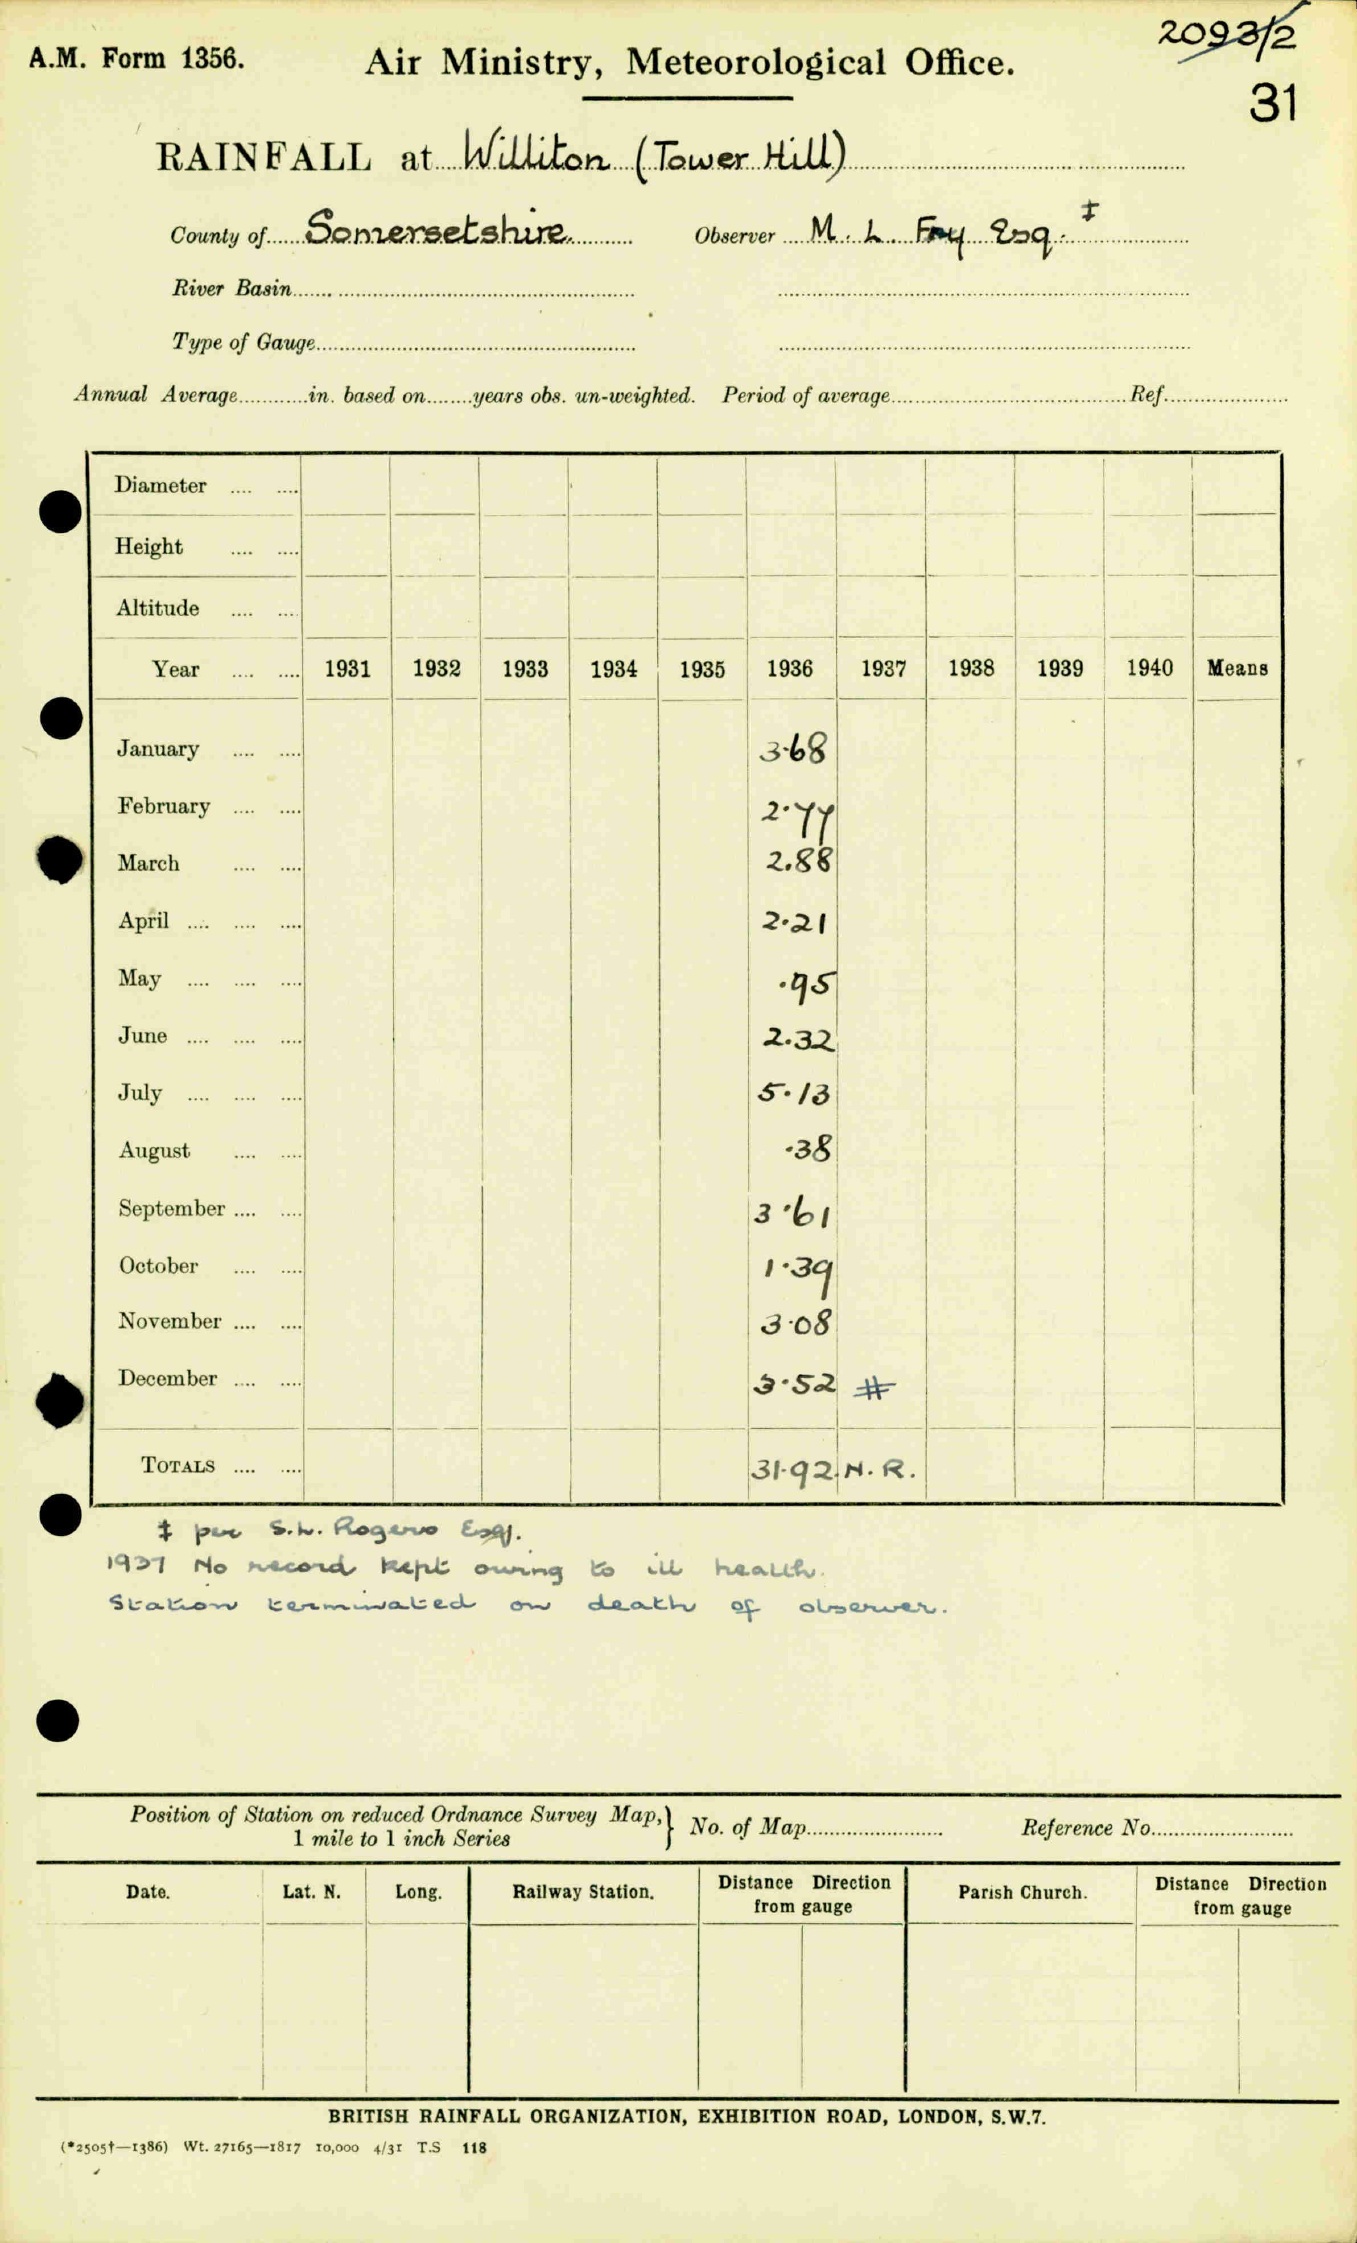 2093/2
A.M. Form 1356. Air Ministry, Meteorological Office.
31
RAINFALL at Williton (Tower Hill)
County of Somersetshire. Observer M. L. Fry Esq. ‡
River Basin
Type of Gauge
Annual Average in. based on years obs. un-weighted. Period of average Ref.
Diameter
Height
Altitude
Year 1931 1932 1933 1934 1935 1936 1937 1938 1939 1940 Means
January 3.68
February 2.77
March 2.88
April 2.21
May .95
June 2.32
July 5.13
August .38
September 3.61
October 1.39
November 3.08
December 3.52 #
TOTALS 31.92 N. R.
‡ per S.L. Rogers Esq.
1937 No record kept owing to ill health.
Station terminated on death of observer.
Position of Station on reduced Ordnance Survey Map, } No. of Map Reference No.
1 mile to 1 inch Series
Date. Lat. N. Long. Railway Station. Distance Direction from gauge Parish Church. Distance Direction from gauge
BRITISH RAINFALL ORGANIZATION, EXHIBITION ROAD, LONDON, S.W.7.
(*2505†—1386) Wt. 27165—1817 10,000 4/31 T.S 118